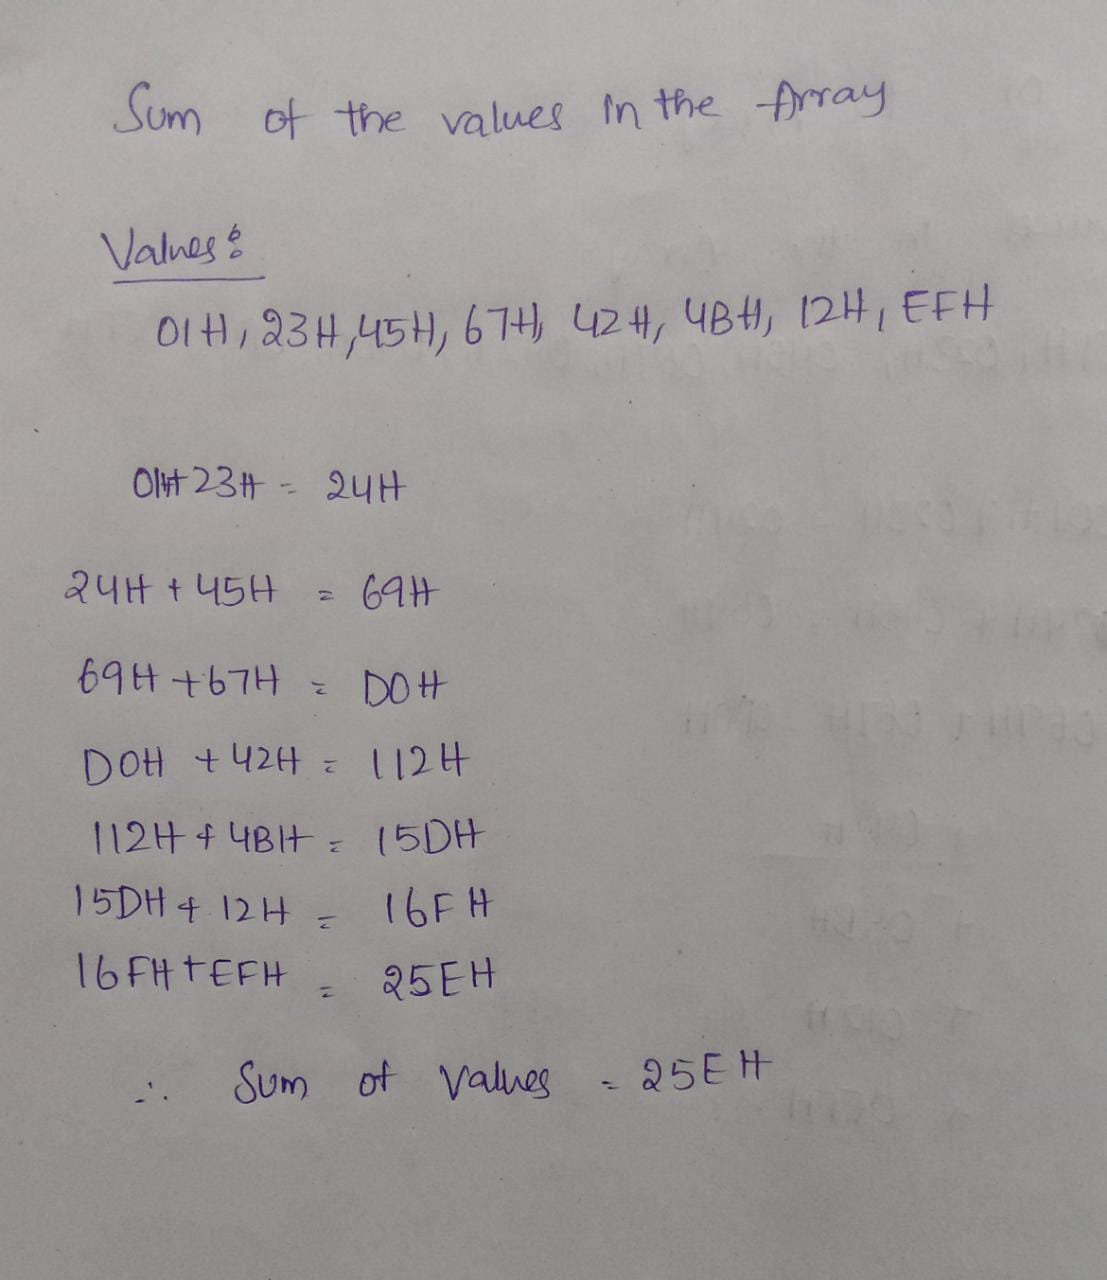 Sum of the values in the Array
Values:
01H, 23H, 45H, 67H, 42H, 4BH, 12H, EFH
01H+23H = 24H
24H + 45H = 69H
69H + 67H = D0H
D0H + 42H = 112H
112H + 4BH = 15DH
15DH + 12H = 16FH
16FH + EFH = 25EH
∴ Sum of values = 25EH